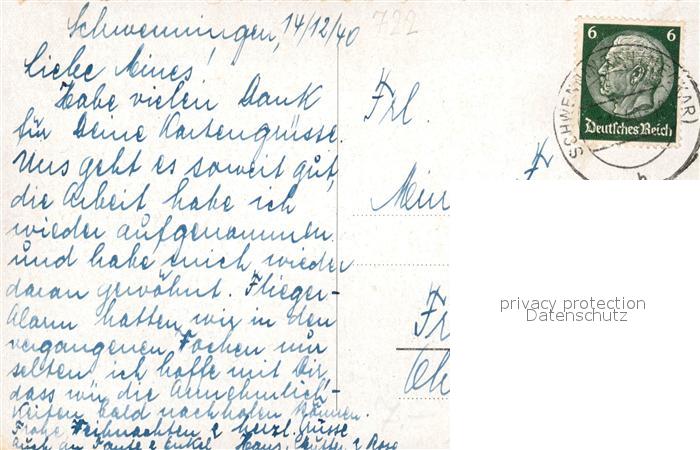 Schwenningen, 14/12/40
722
Liebe Mines!
Habe vielen Dank
für Deine Kartengrüsse.
Uns geht es soweit gut,
die Arbeit habe ich
wieder aufgenommen
und habe mich wieder
daran gewöhnt. Flieger-
Alarm hatten wir in den
vergangenen Wochen nur
selten, ich hoffe mit Dir,
dass wir die Annehmlich-
keiten bald nachholen können.
Frohe Weihnachten & herzl. Grüsse
auch an Tante & Enkel Hans, & Rose
Frl
Fr
6 6
Deutsches Reich
SCHWENN KAR)
b
privacy protection
Datenschutz